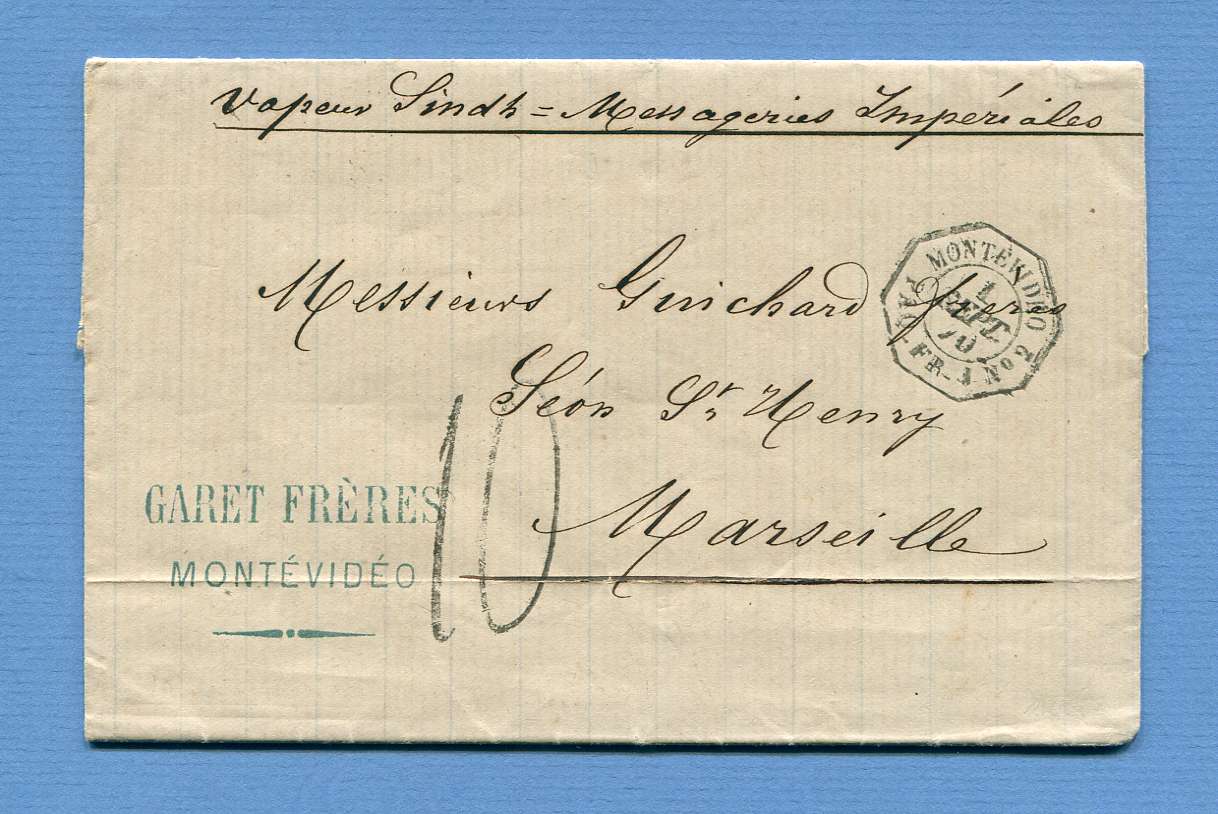 Vapeur Sindh = Messageries Impériales
MONTÉVIDEO
1
SEPT
70
PAQ. FR. J No 2
Messieurs Guichard frères
Séon St Henry
Marseille
10
GARET FRÈRES
MONTÉVIDÉO